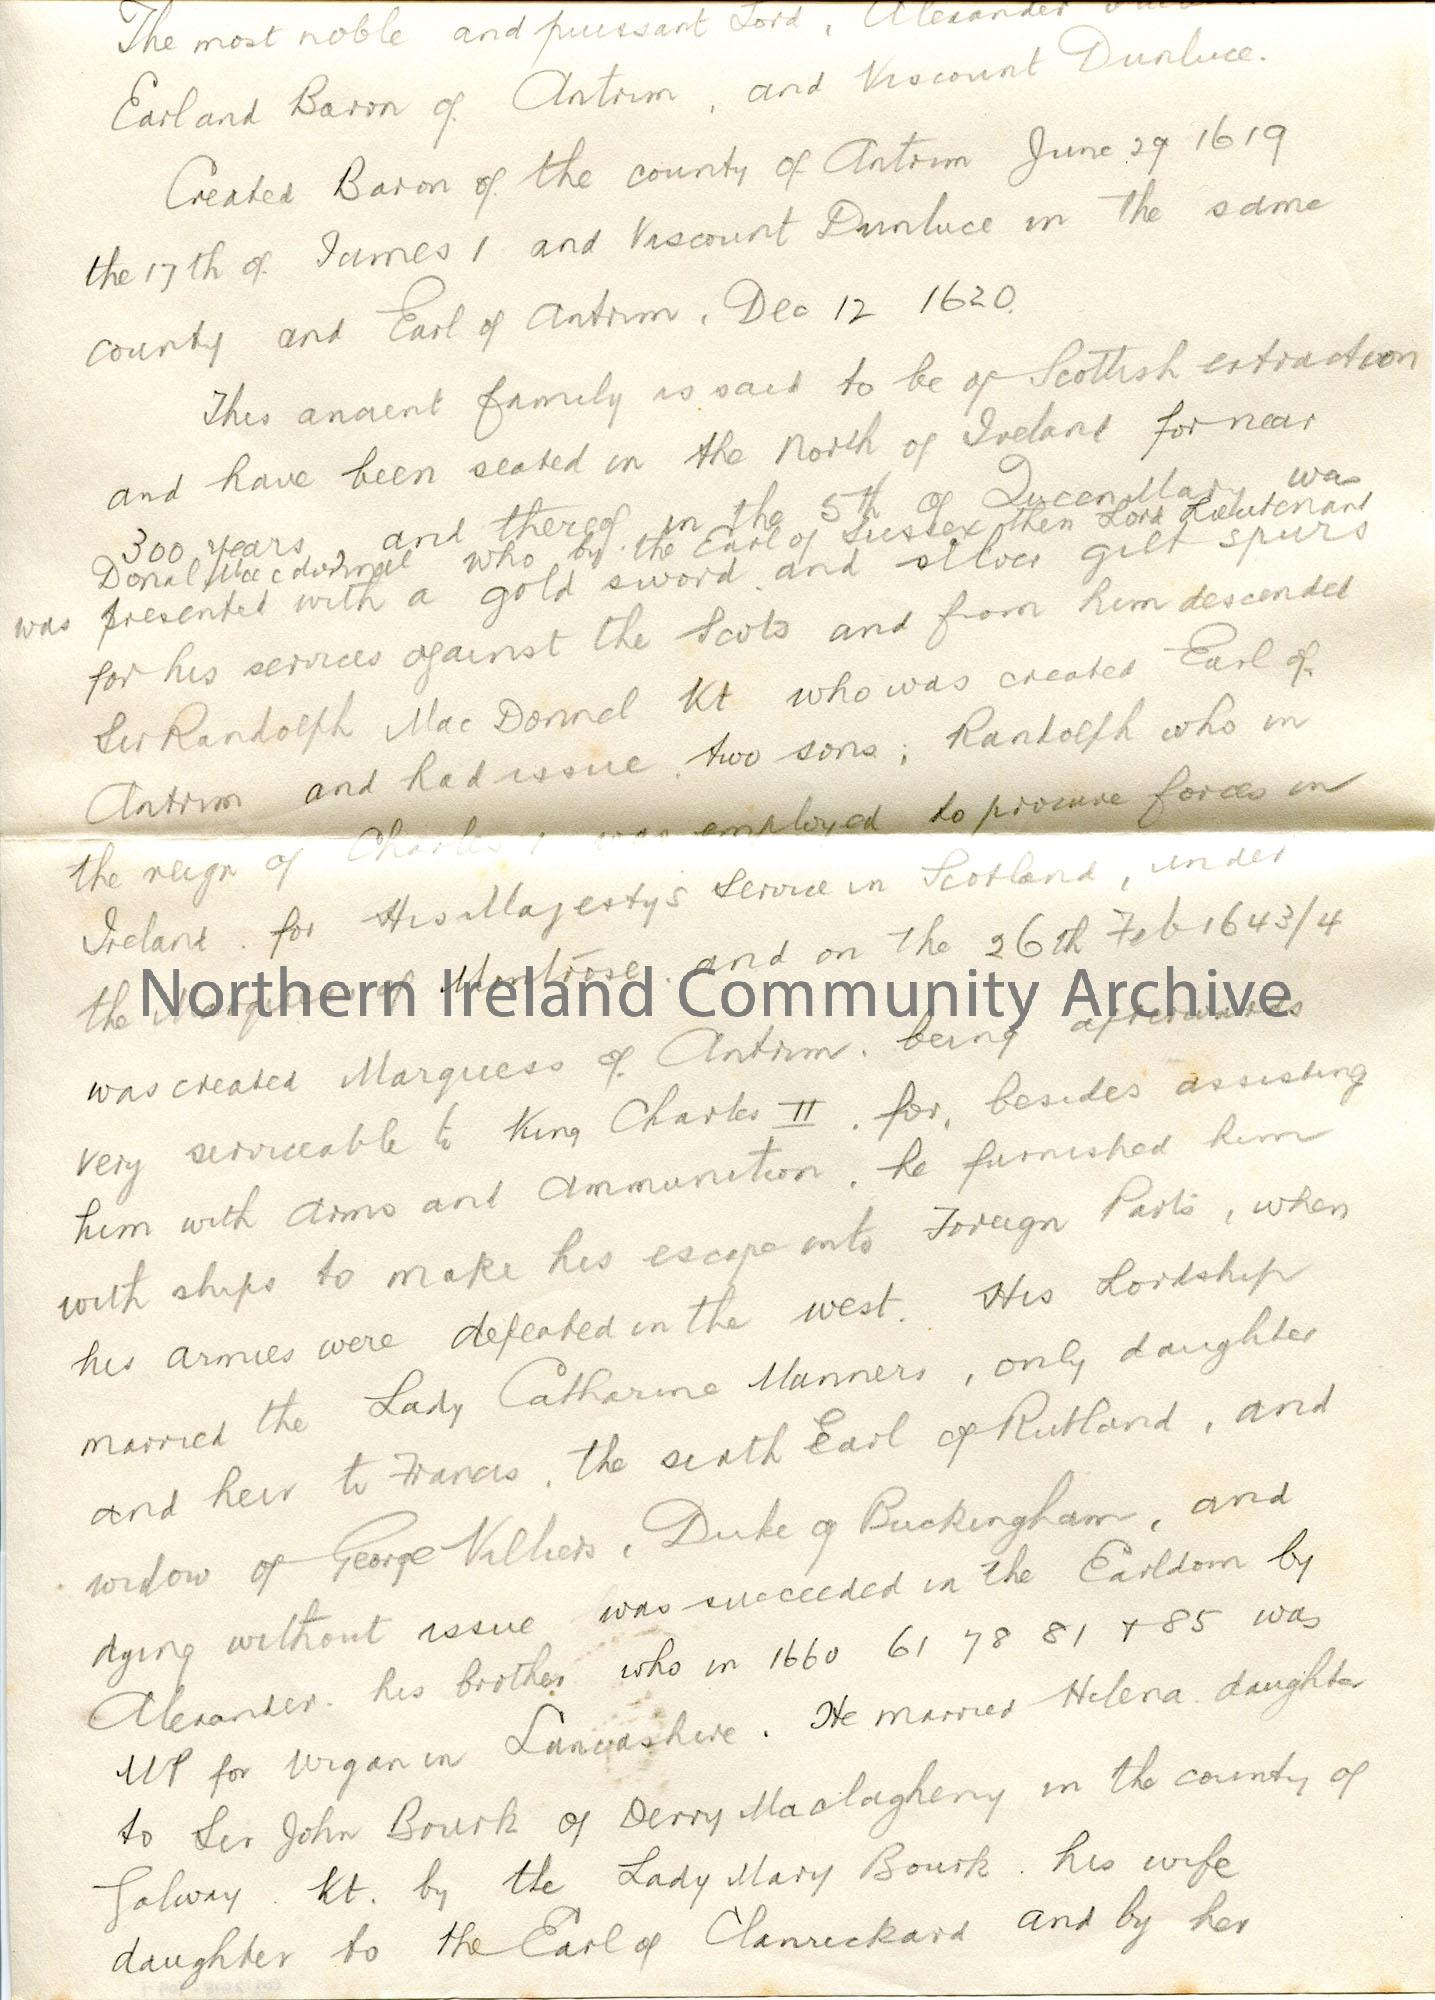 The most noble and puissant Lord, Alexander
Earl and Baron of Antrim, and Viscount Dunluce.
Created Baron of the county of Antrim June 29 1619
the 17th of James 1 and Viscount Dunluce in the same
county and Earl of Antrim, Dec 12 1620.
This ancient family is said to be of Scottish extraction
and have been seated in the North of Ireland for near
300 years and thereof in the 5th of Queen Mary was
Donal Macdonnal who by the Earl of Sussex then Lord Lieutenant
was presented with a gold sword and silver gilt spurs
for his services against the Scots and from him descended
Sir Randolph MacDonnel Kt who was created Earl of
Antrim and had issue two sons; Randolph who in
the reign of Charles 1 was employed to procure forces in
Ireland for His Majesty's Service in Scotland, under
the Marquess of Montrose. and on the 26th Feb 1643/4
Northern Ireland Community Archive
was created Marquess of Antrim. being afterwards
very serviceable to King Charles II. for, besides assisting
him with arms and ammunition, he furnished him
with ships to make his escape into Foreign Parts, when
his armies were defeated in the west. His Lordship
married the Lady Catharine Manners, only daughter
and heir to Francis, the sixth Earl of Rutland, and
widow of George Villiers, Duke of Buckingham, and
dying without issue was succeeded in the Earldom by
Alexander. his brother who in 1660 61 78 81 + 85 was
MP for Wigan in Lancashire. He married Helena daughter
to Sir John Bourk of Derry Maclagheny in the county of
Galway Kt. by the Lady Mary Bourk. his wife
daughter to the Earl of Clanrickard and by her